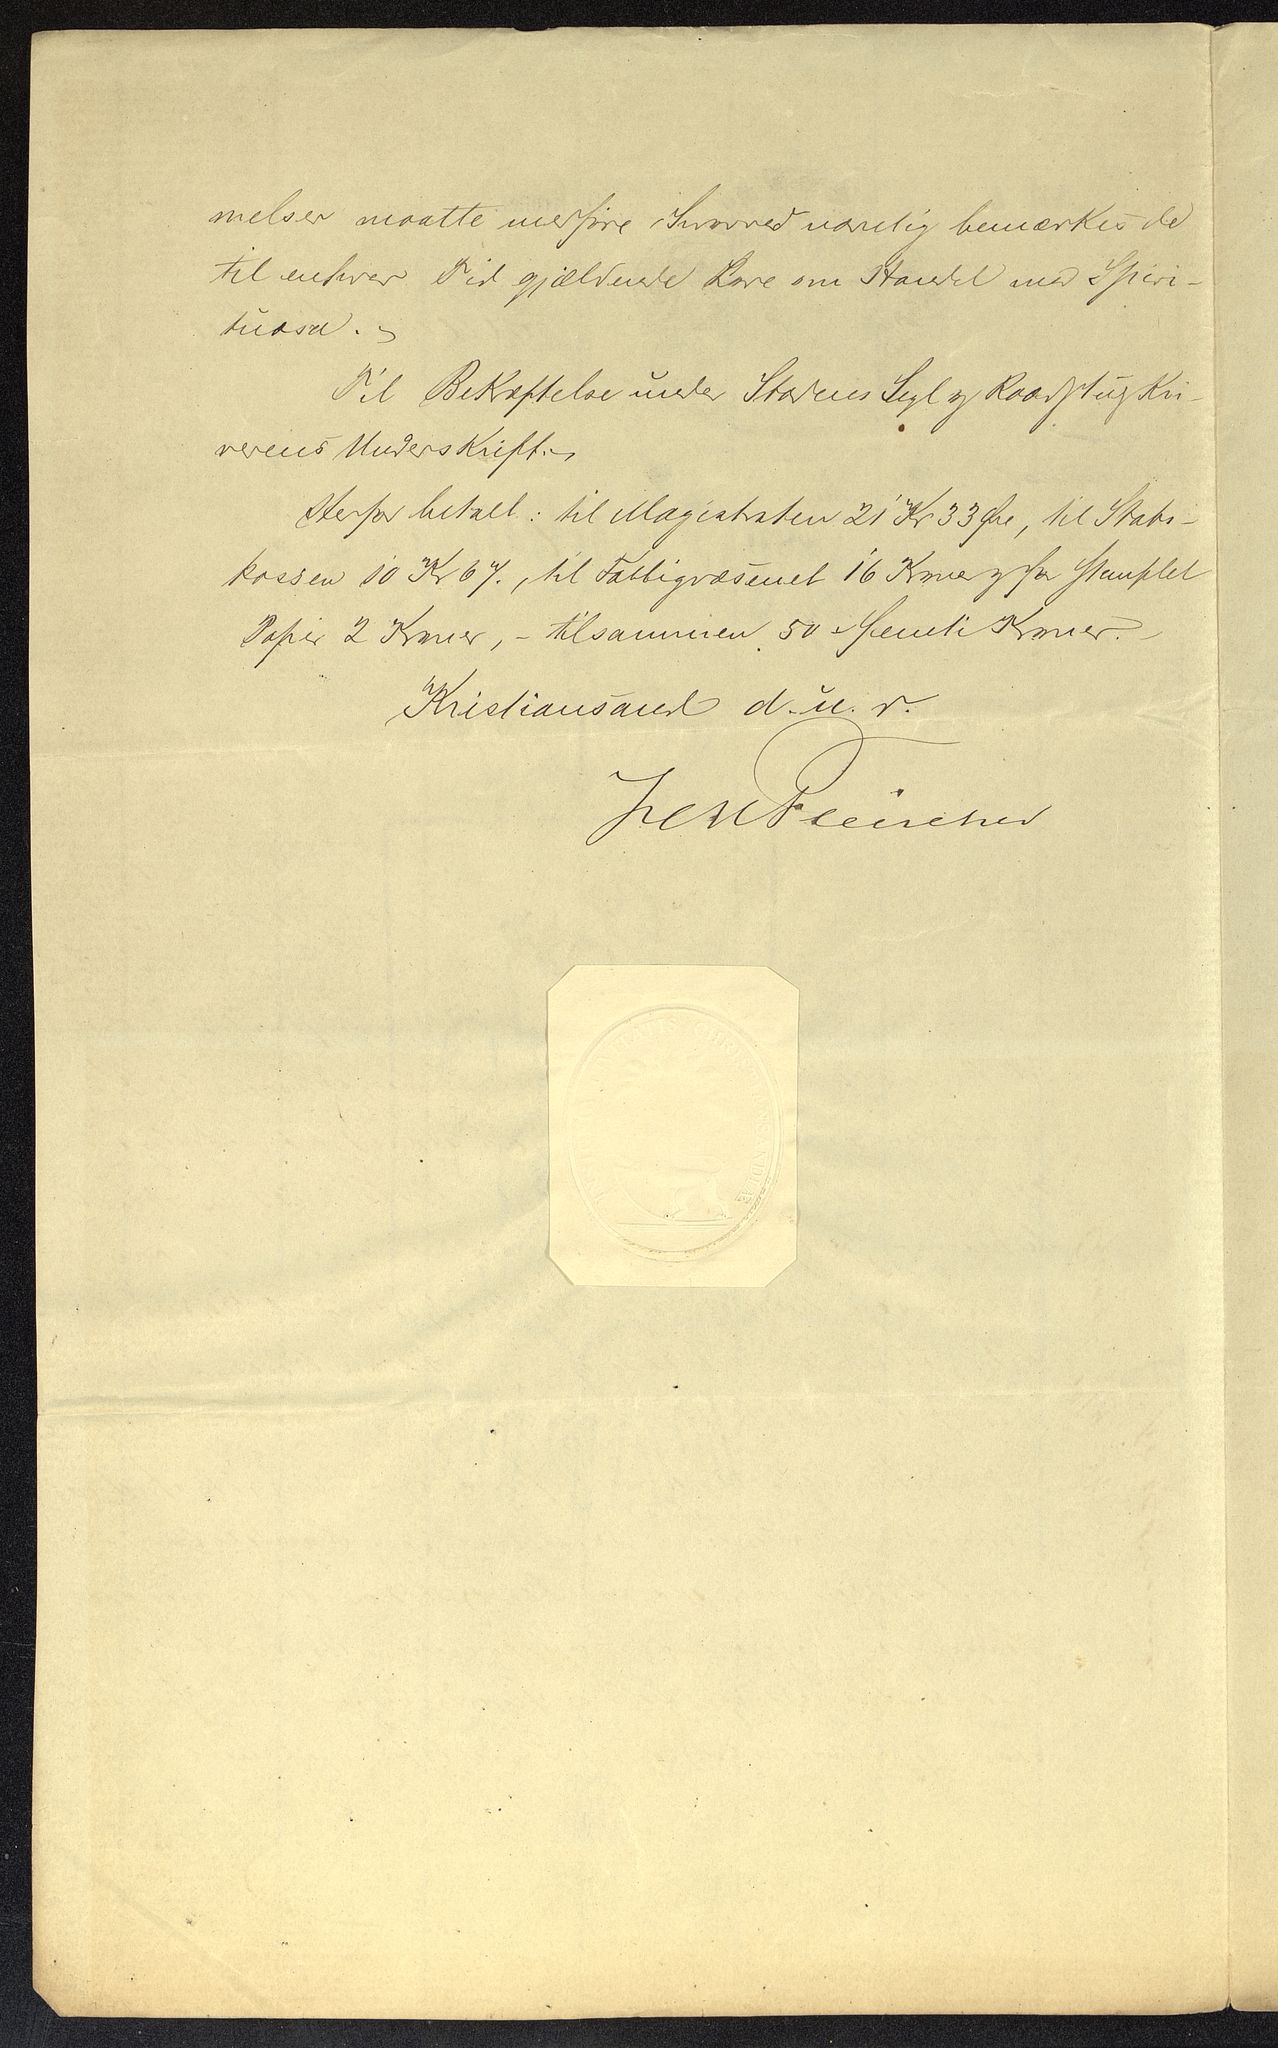 melser maatte medføre, hvorved navnlig bemærkes de
til enhver Tid gjældende Love om Handel med Spiri-
tuosa. 
Til Bekræftelse under Stadens Segl og Raadstuskri-
verens Underskrift. 
Herfor betalt: til Magistraten 21 Kr 33 Øre, til Stads-
kassen 10 Kr 67., til Fattigvæsenet 16 Kroner og for stemplet
Papir 2 Kroner, - tilsammen 50 femti Kroner. -
Kristiansand d. u. s.